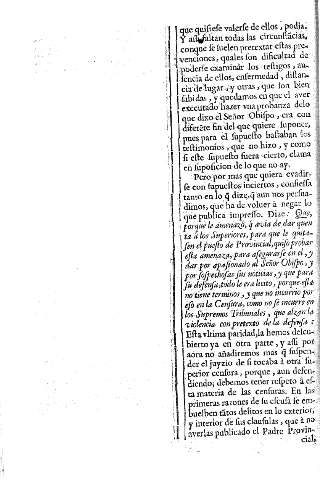 que quisiesse valerse de ellos, podia.
Y assi faltan todas las circunstãcias,
conque se suelen pretextar estas pre-
venciones, quales son dificultad de
poderse examinar los testigos, au-
sencia de ellos, enfermedad, distan-
cia de lugar, y otras, que son bien
sabidas, y quedamos en que el aver
executado hazer vna probanza delo
que dixo el Señor Obispo, era con
diferẽte fin del que quiere suponer,
pues para el supuesto bastaban los
testimonios, que no hizo, y como
si este supuesto fuera cierto, clama
en suposicion de lo que no ay.
Pero por mas que quiera evadir-
se con supuestos inciertos, confiessa
tanto en lo q̃ dize, q̃ aun nos persua-
dimos, que ha de volver à negar lo
que publica impresso. Dize: Que,
porque le amenazò, q̃ avia de dar quen
ta à los Superiores, para que le quitas-
sen el puesto de Provincial, quiso probar
esta amenaza, para assegurarse en el, y
dar por apassionado al Señor Obispo, y
por sospechosas sus noticias, y que para
su defensa, todo le era licito, porque esta
no tiene terminos, y que no incurrio por
esso en la Censura, como no se incurre en
los Supremos Tribunales, que alzan la
violencia con pretexto de la defensa:
Esta vltima paridad, la hemos descu-
bierto ya en otra parte, y assi por
aora no añadiremos mas q̃ suspen-
der el juyzio de si tocaba à otra su-
perior censura, porque, aun defen-
diendo, debemos tener respeto à es-
ta materia de las censuras. En las
primeras razones de su escusa se em-
buelben tãtos delitos en lo exterior,
y interior de sus clausulas, que à no
averlas publicado el Padre Provin-
cial,